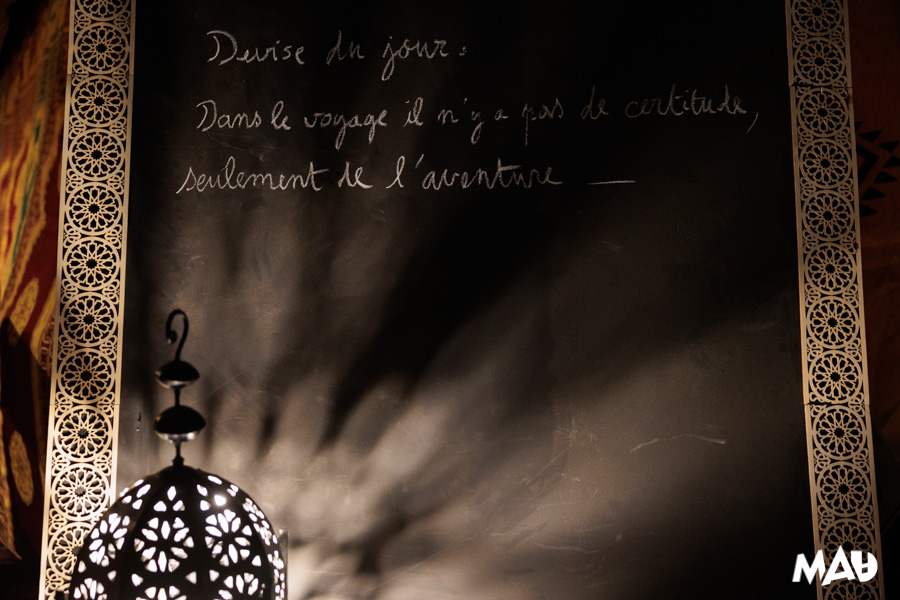 Devise du jour :
Dans le voyage il n'y a pas de certitude,
seulement de l'aventure —
MAD